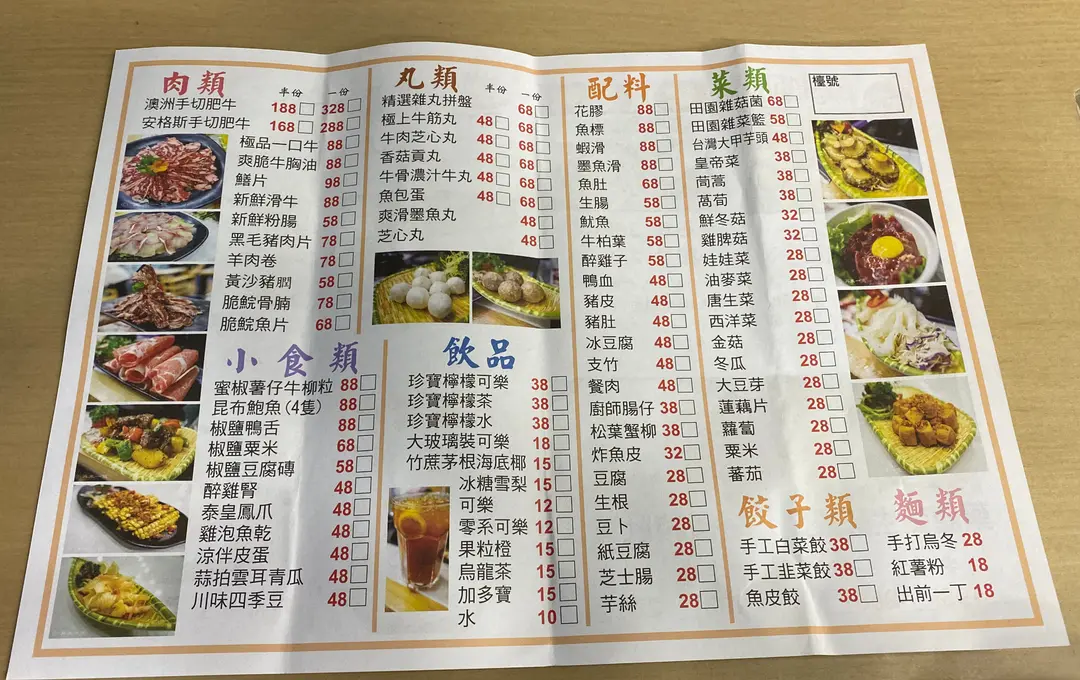 肉類
半份 一份
澳洲手切肥牛 188 328
安格斯手切肥牛 168 288
極品一口牛 88
爽脆牛胸油 88
鱔片 98
新鮮滑牛 88
新鮮粉腸 58
黑毛豬肉片 78
羊肉卷 78
黃沙豬膶 58
脆鯇骨腩 78
脆鯇魚片 68
小食類
蜜椒薯仔牛柳粒 88
昆布鮑魚(4隻) 88
椒鹽鴨舌 88
椒鹽粟米 68
椒鹽豆腐磚 58
醉雞腎 48
泰皇鳳爪 48
雞泡魚乾 48
涼伴皮蛋 48
蒜拍雲耳青瓜 48
川味四季豆 48
丸類
半份 一份
精選雜丸拼盤 68
極上牛筋丸 48 68
牛肉芝心丸 48 68
香菇貢丸 48 68
牛骨濃汁牛丸 48 68
魚包蛋 48 68
爽滑墨魚丸 48
芝心丸 48
飲品
珍寶檸檬可樂 38
珍寶檸檬茶 38
珍寶檸檬水 38
大玻璃裝可樂 18
竹蔗茅根海底椰 15
冰糖雪梨 15
可樂 12
零系可樂 12
果粒橙 15
烏龍茶 15
加多寶 15
水 10
配料
花膠 88
魚標 88
蝦滑 88
墨魚滑 88
魚肚 68
生腸 58
魷魚 58
牛柏葉 58
醉雞子 58
鴨血 48
豬皮 48
豬肚 48
冰豆腐 48
支竹 48
餐肉 48
廚師腸仔 38
松葉蟹柳 38
炸魚皮 32
豆腐 28
生根 28
豆卜 28
紙豆腐 28
芝士腸 28
芋絲 28
菜類
田園雜菇菌 68
田園雜菜籃 58
台灣大甲芋頭 48
皇帝菜 38
茼蒿 38
萵荀 38
鮮冬菇 32
雞脾菇 32
娃娃菜 28
油麥菜 28
唐生菜 28
西洋菜 28
金菇 28
冬瓜 28
大豆芽 28
蓮藕片 28
蘿蔔 28
粟米 28
蕃茄 28
檯號
餃子類
手工白菜餃 38
手工韭菜餃 38
魚皮餃 38
麵類
手打烏冬 28
紅薯粉 18
出前一丁 18